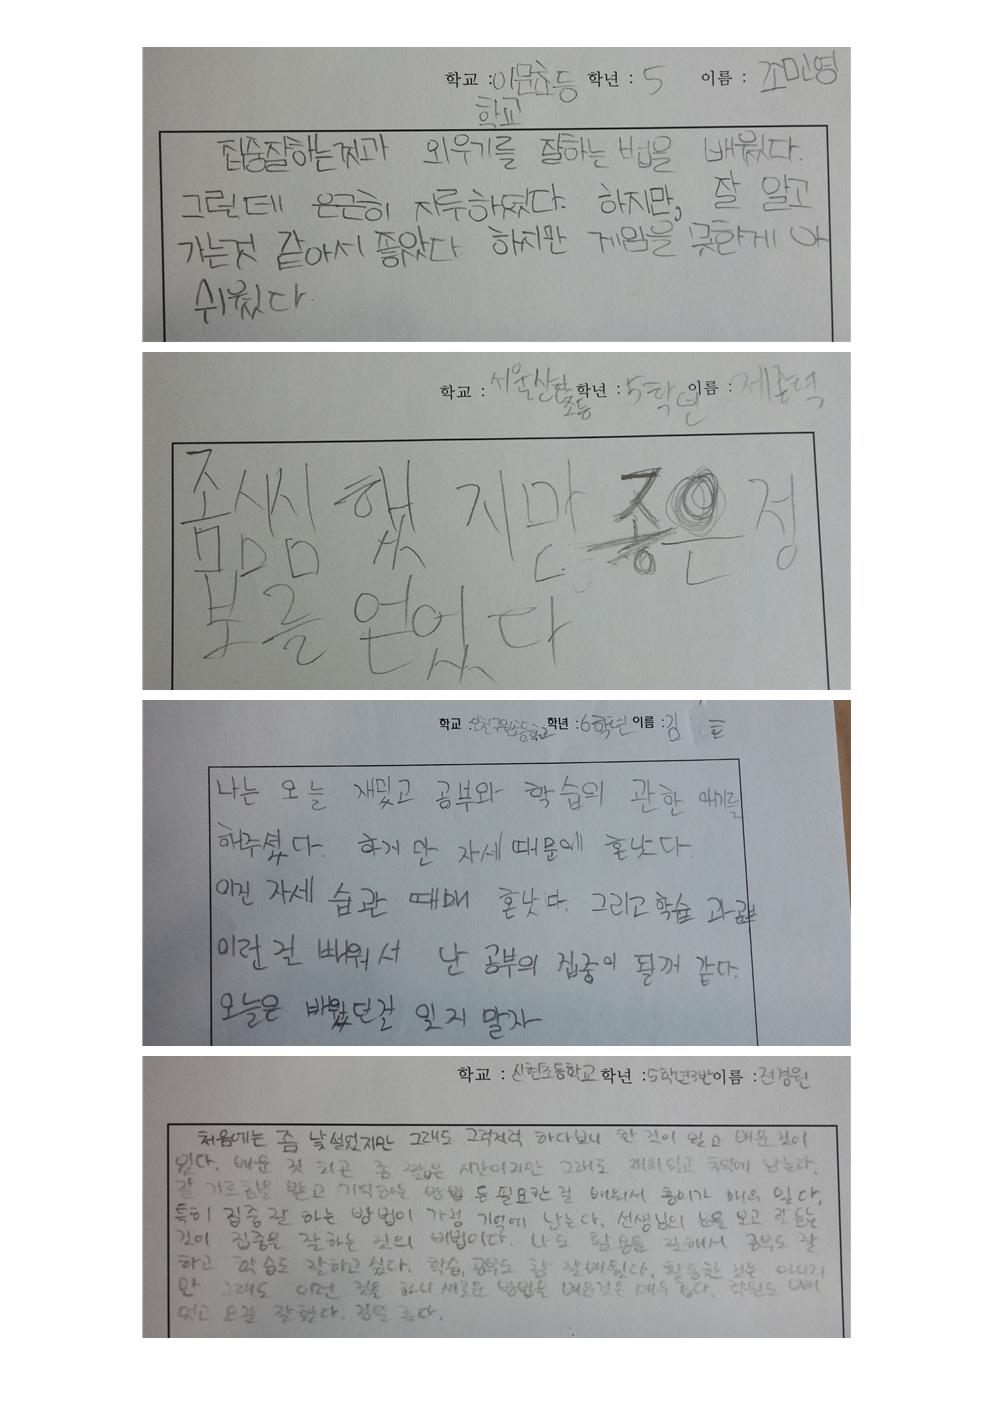 학교 : 이문초등 학년 : 5 이름 : 조민영
학교
집중잘하는것과 외우기를 잘하는 법을 배웠다.
그런데 은근히 지루하였다. 하지만, 잘 알고
가는것 같아서 좋았다. 하지만 게임을 못한게 아
쉬웠다.
학교 : 서울신현 학년 : 5학년 이름 :
초등
좀 심심했지만 좋은 정
보를 얻었다
학교 : 학년 : 6학년 이름 : 김
나는 오늘 재밌고 공부와 학습의 관한 얘기를
해주셨다. 하지만 자세때문에 혼낫다.
이런 자세 습관 때매 혼낫다. 그리고 학습 과 공부
이런걸 배워서 난 공부의 집중이 될꺼 같다.
오늘은 배웠던걸 잊지 말자
학교 : 신현초등학교 학년 : 5학년3반 이름 : 전경원
처음에는 좀 낯설었지만 그래도 그럭저럭 하다보니 한 것이 있고 배운 것이
있다. 배운 것 치곤 좀 짧은 시간이지만 그래도 재미있고 기억에 남는다.
잘 가르침을 받고 기억하는 방법 등 필요한걸 배워서 흥미가 매우 있다.
특히 집중 잘 하는 방법이 가장 기억에 남는다. 선생님의 눈을 보고 잘 듣는
것이 집중을 잘하는 것의 비법이다. 나도 활용을 잘해서 공부도 잘
하고 학습도 잘하고 싶다. 학습, 공부도 참 잘배웠다. 활동한 것은 아니지
만 그래도 이런 것을 하니 새로운 방법을 배운것은 매우 좋다. 학원도 빼
먹고 오길 잘했다. 정말 좋다.